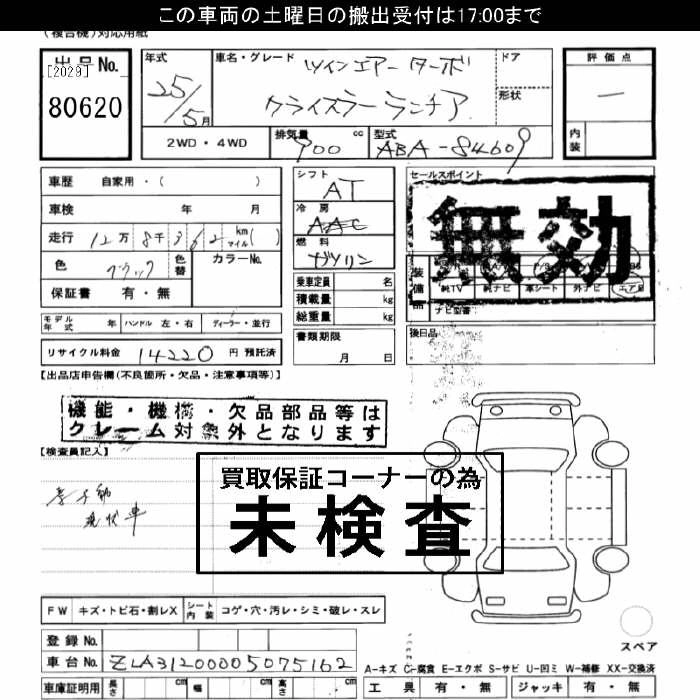 この車両の土曜日の搬出受付は17:00まで
(複合機)対応用紙
出品No.
[2029]
80620
年式
25/5月
車名・グレード
ツインエアー ターボ
クライスラー ランチア
ドア
形状
評価点
—
内装
2WD・4WD
排気量
900 cc
型式
ABA-84609
車歴 自家用・( )
車検 年 月
走行 12万 8千 362 km マイル( )
色 ブラック
色替
カラーNo.
保証書 有・無
シフト
AT
冷房
AAC
燃料
ガソリン
乗車定員 名
積載量 kg
総重量 kg
セールスポイント
無効
装備品
純TV 純ナビ 革シート 外ナビ エアB
ナビ型番
モデル年式 年 ハンドル 左・右 ディーラー・並行
書類期限
月 日
後日品
リサイクル料金 14220 円 預託済
【出品店申告欄(不良箇所・欠品・注意事項等)】
機能・機構・欠品部品等は
クレーム対象外となります
【検査員記入】
現状車
買取保証コーナーの為
未検査
FW キズ・トビ石・割レX シート内装 コゲ・穴・汚レ・シミ・破レ・スレ
登録No.
車台No. ZLA31200005075162
車庫証明用 長さ cm 幅 cm 高さ cm
スペア
A-キズ C-腐食 E-エクボ S-サビ U-凹ミ W-補修 XX-交換済
工具 有・無 ジャッキ 有・無